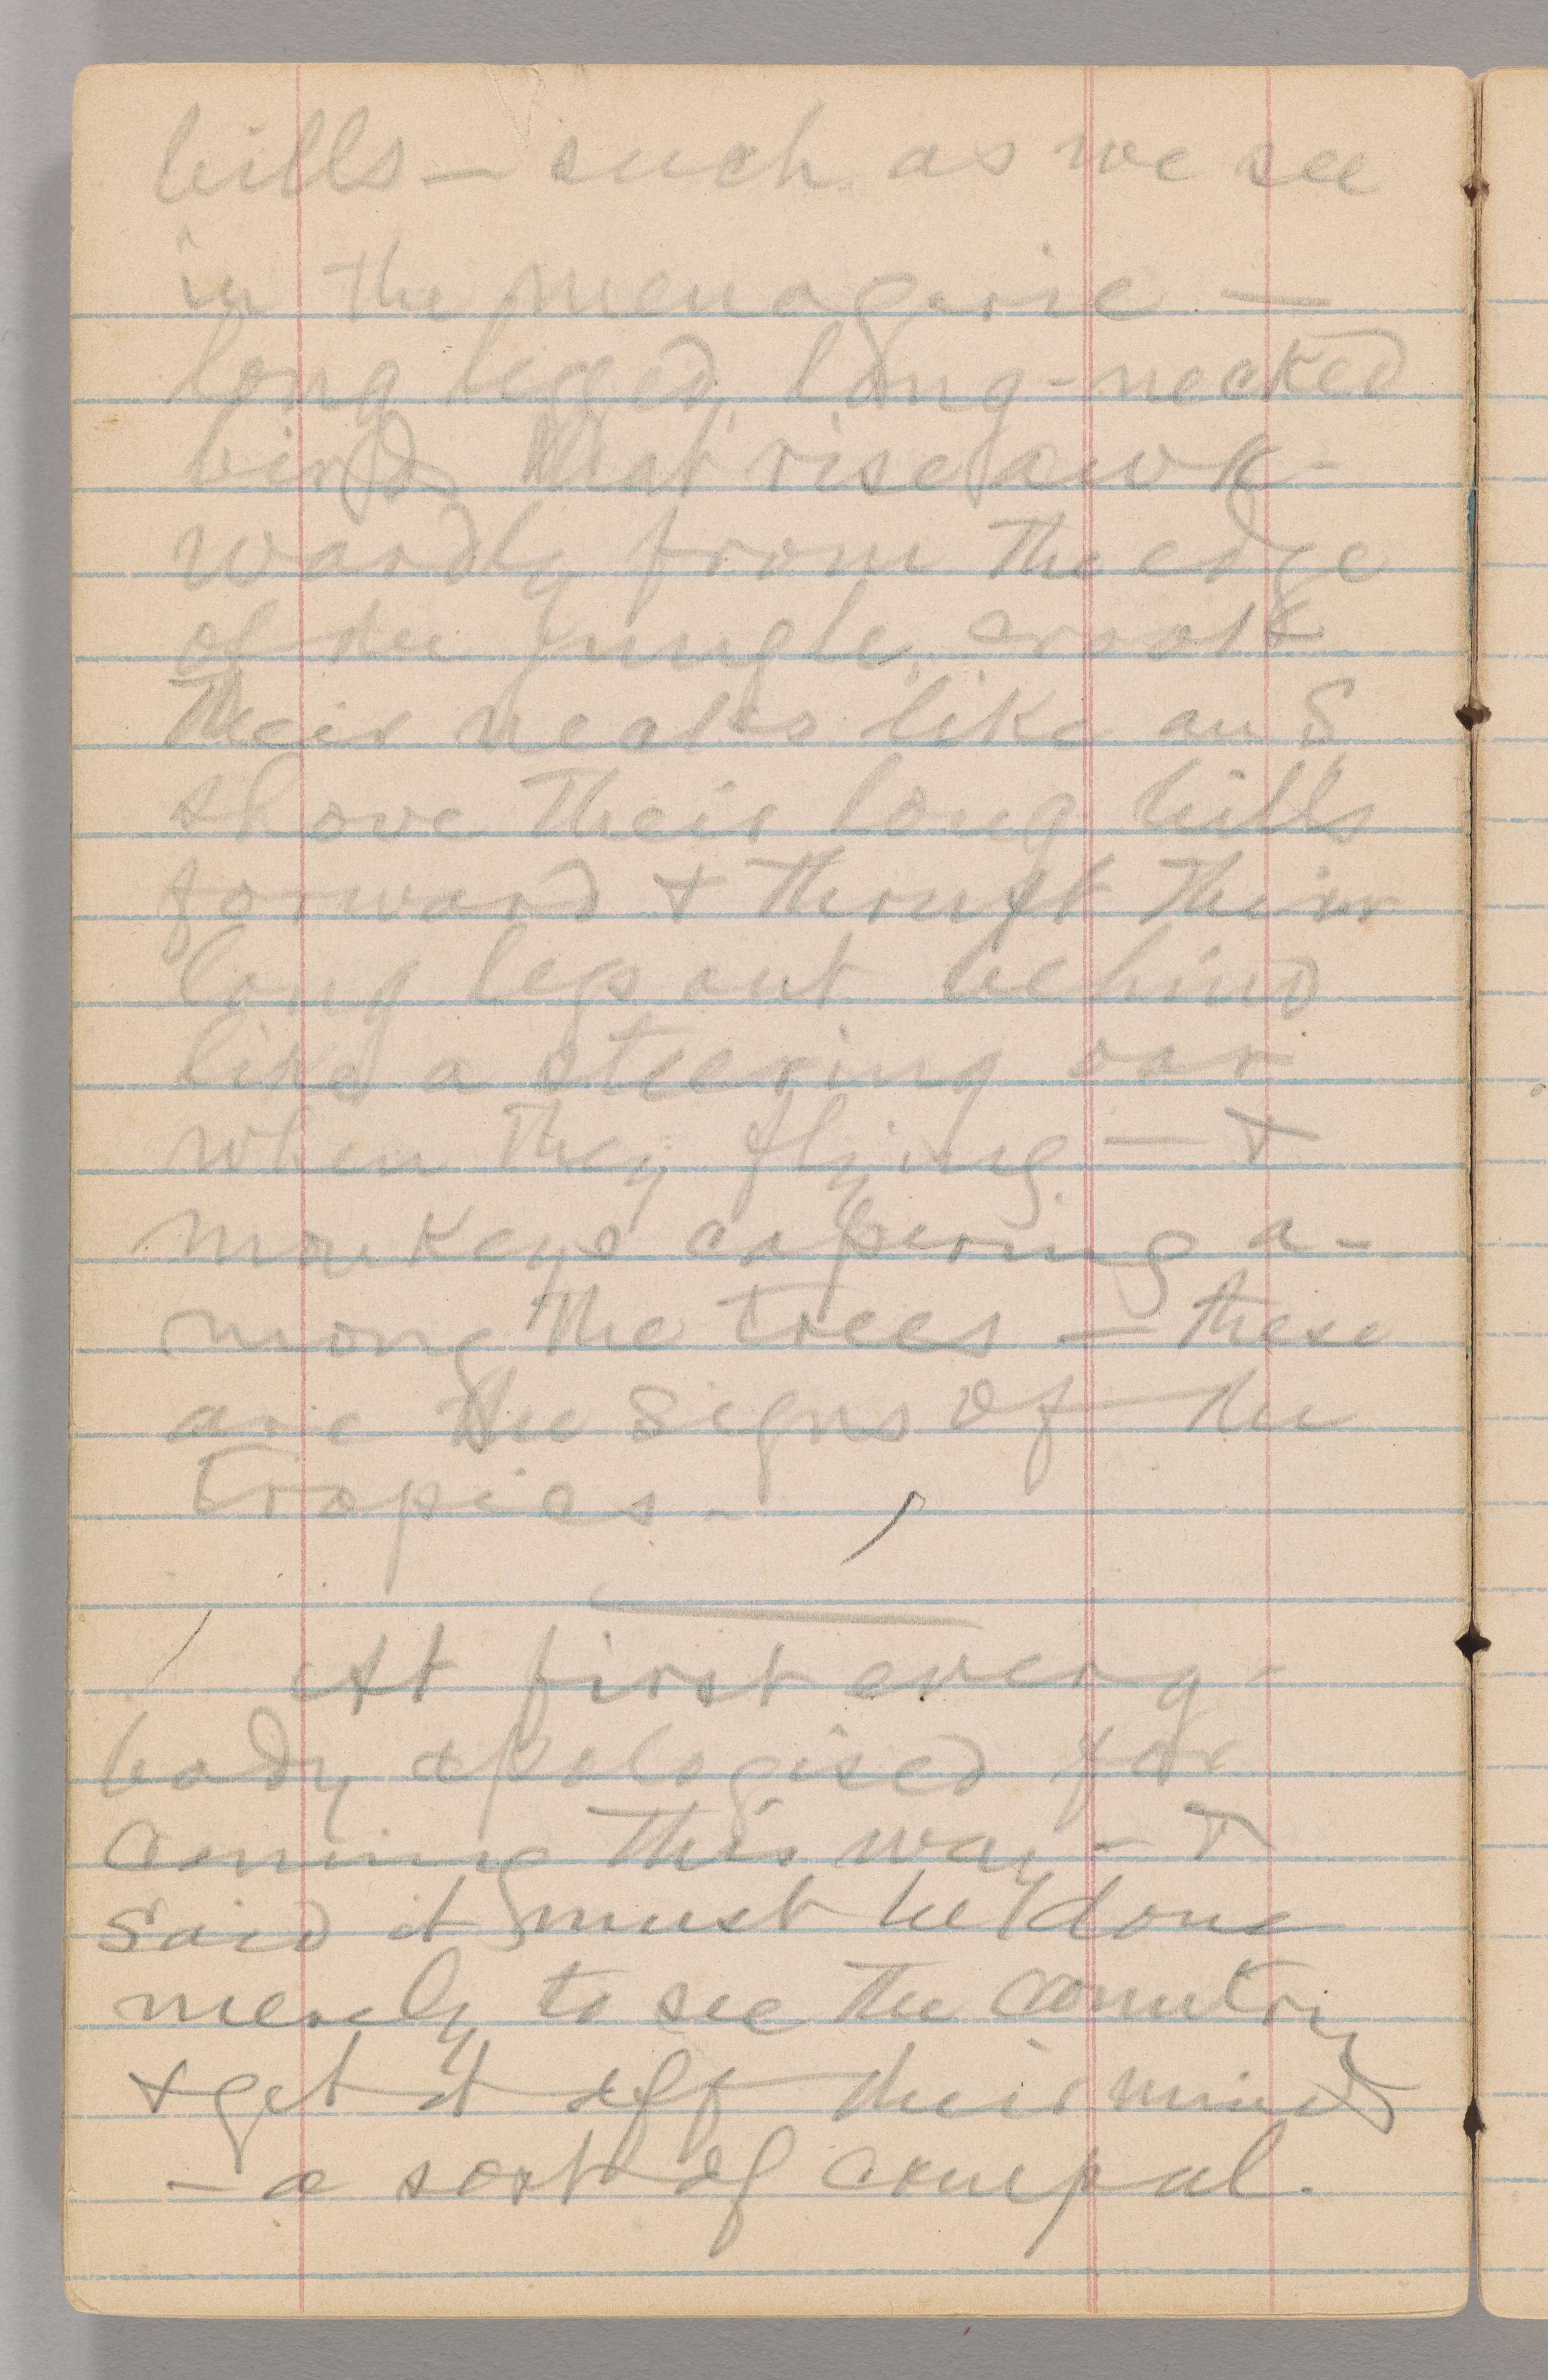 bills — such as we see
in the menagerie —
long legged, long-necked
birds that rise awk-
wardly from the edge
of the jungle, crook
their necks like an S,
shove their long bills
forward & thrust their
long legs out behind
like a steering oar
when they flying — &
monkeys capering a-
mong the trees — these
are the signs of the
tropics.
At first every-
body apologised for
coming this way — &
said it must be done
merely to see the country
& get it off their minds
— a sort of compul.